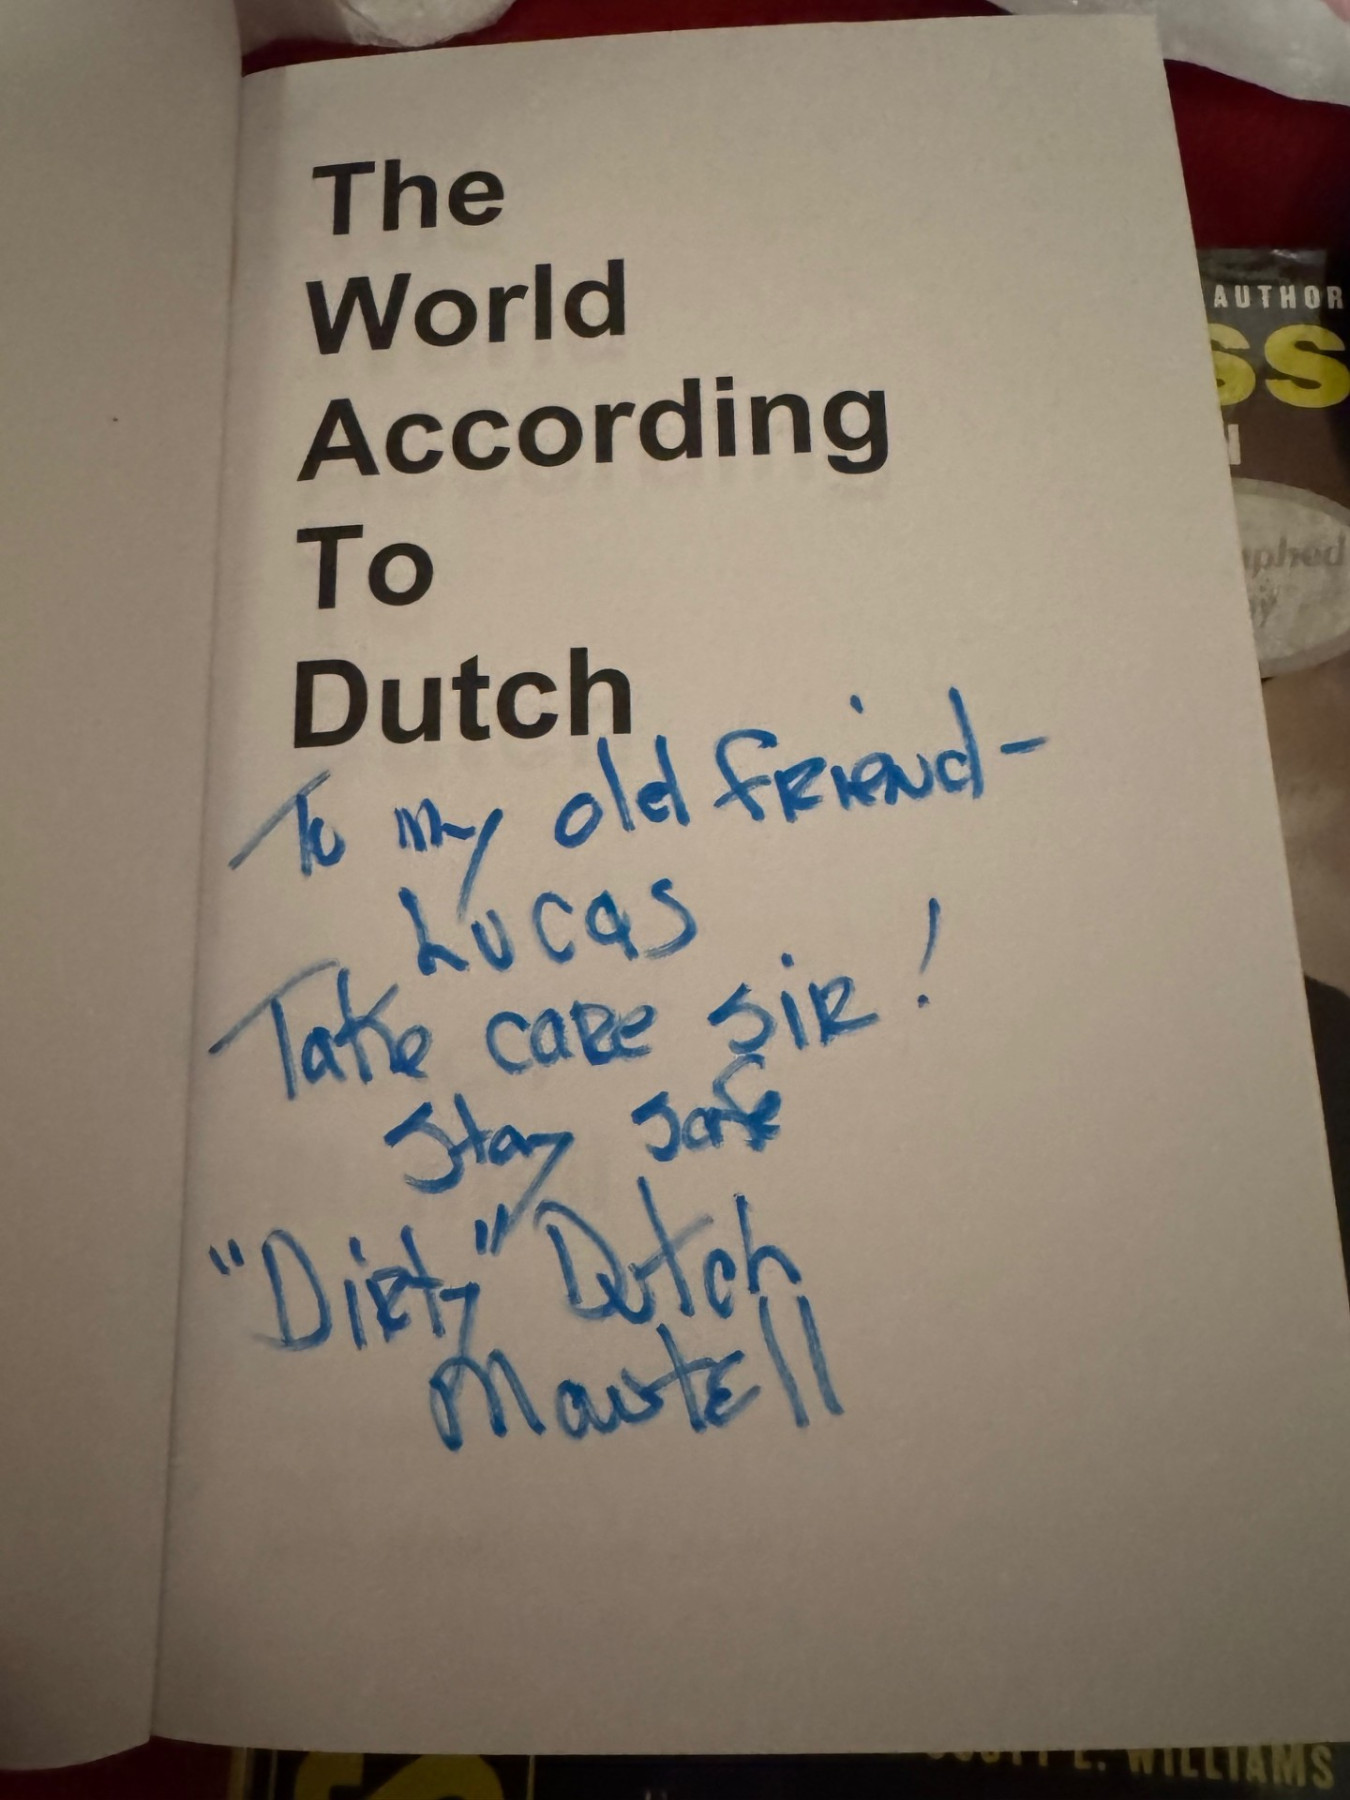 The
World
According
To
Dutch
To my old friend-
Lucas
Take care sir!
Stay safe
"Dirty" Dutch
Mantell
AUTHOR
SS
L. WILLIAMS